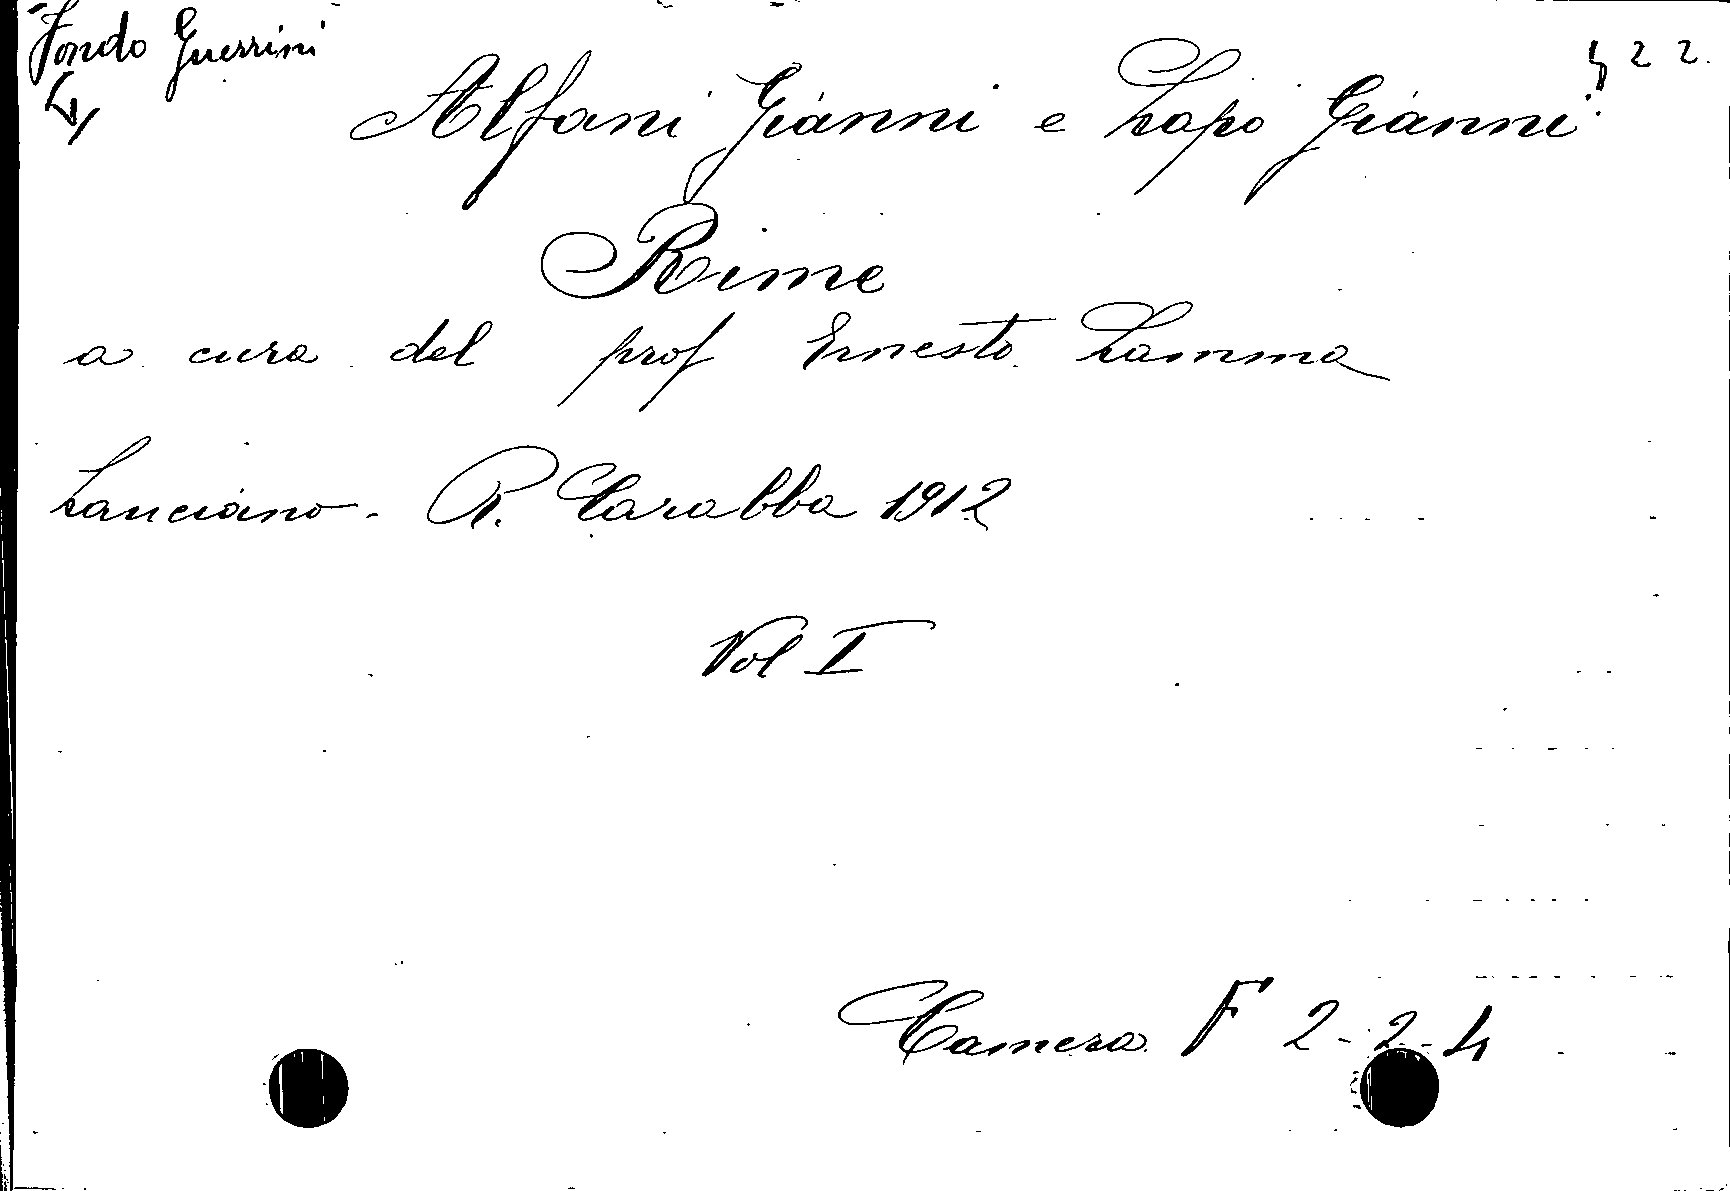 Fondo Guerrini
4
422.
Alfani Gianni e Lapo Gianni
Rime
a cura del prof Ernesto Lamma
Lanciano - R. Carabba 1912
Vol I
Camera F 2-2-4